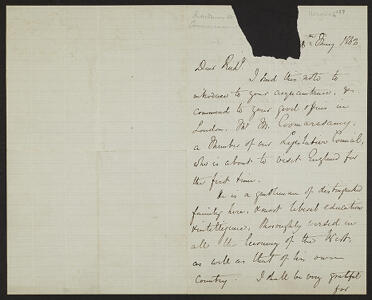 1862
Dear
I send this note to
introduce to your acquaintance, &
commend to your good offices in
London, Mr. M. Coomarasamy,
a Member of our Legislative Council,
who is about to visit England for
the first time.
He is a gentleman of distinguished
family here, & most liberal education
& intelligence, thoroughly versed in
all the learning of the West,
as well as that of his own
Country. I shall be very grateful
for